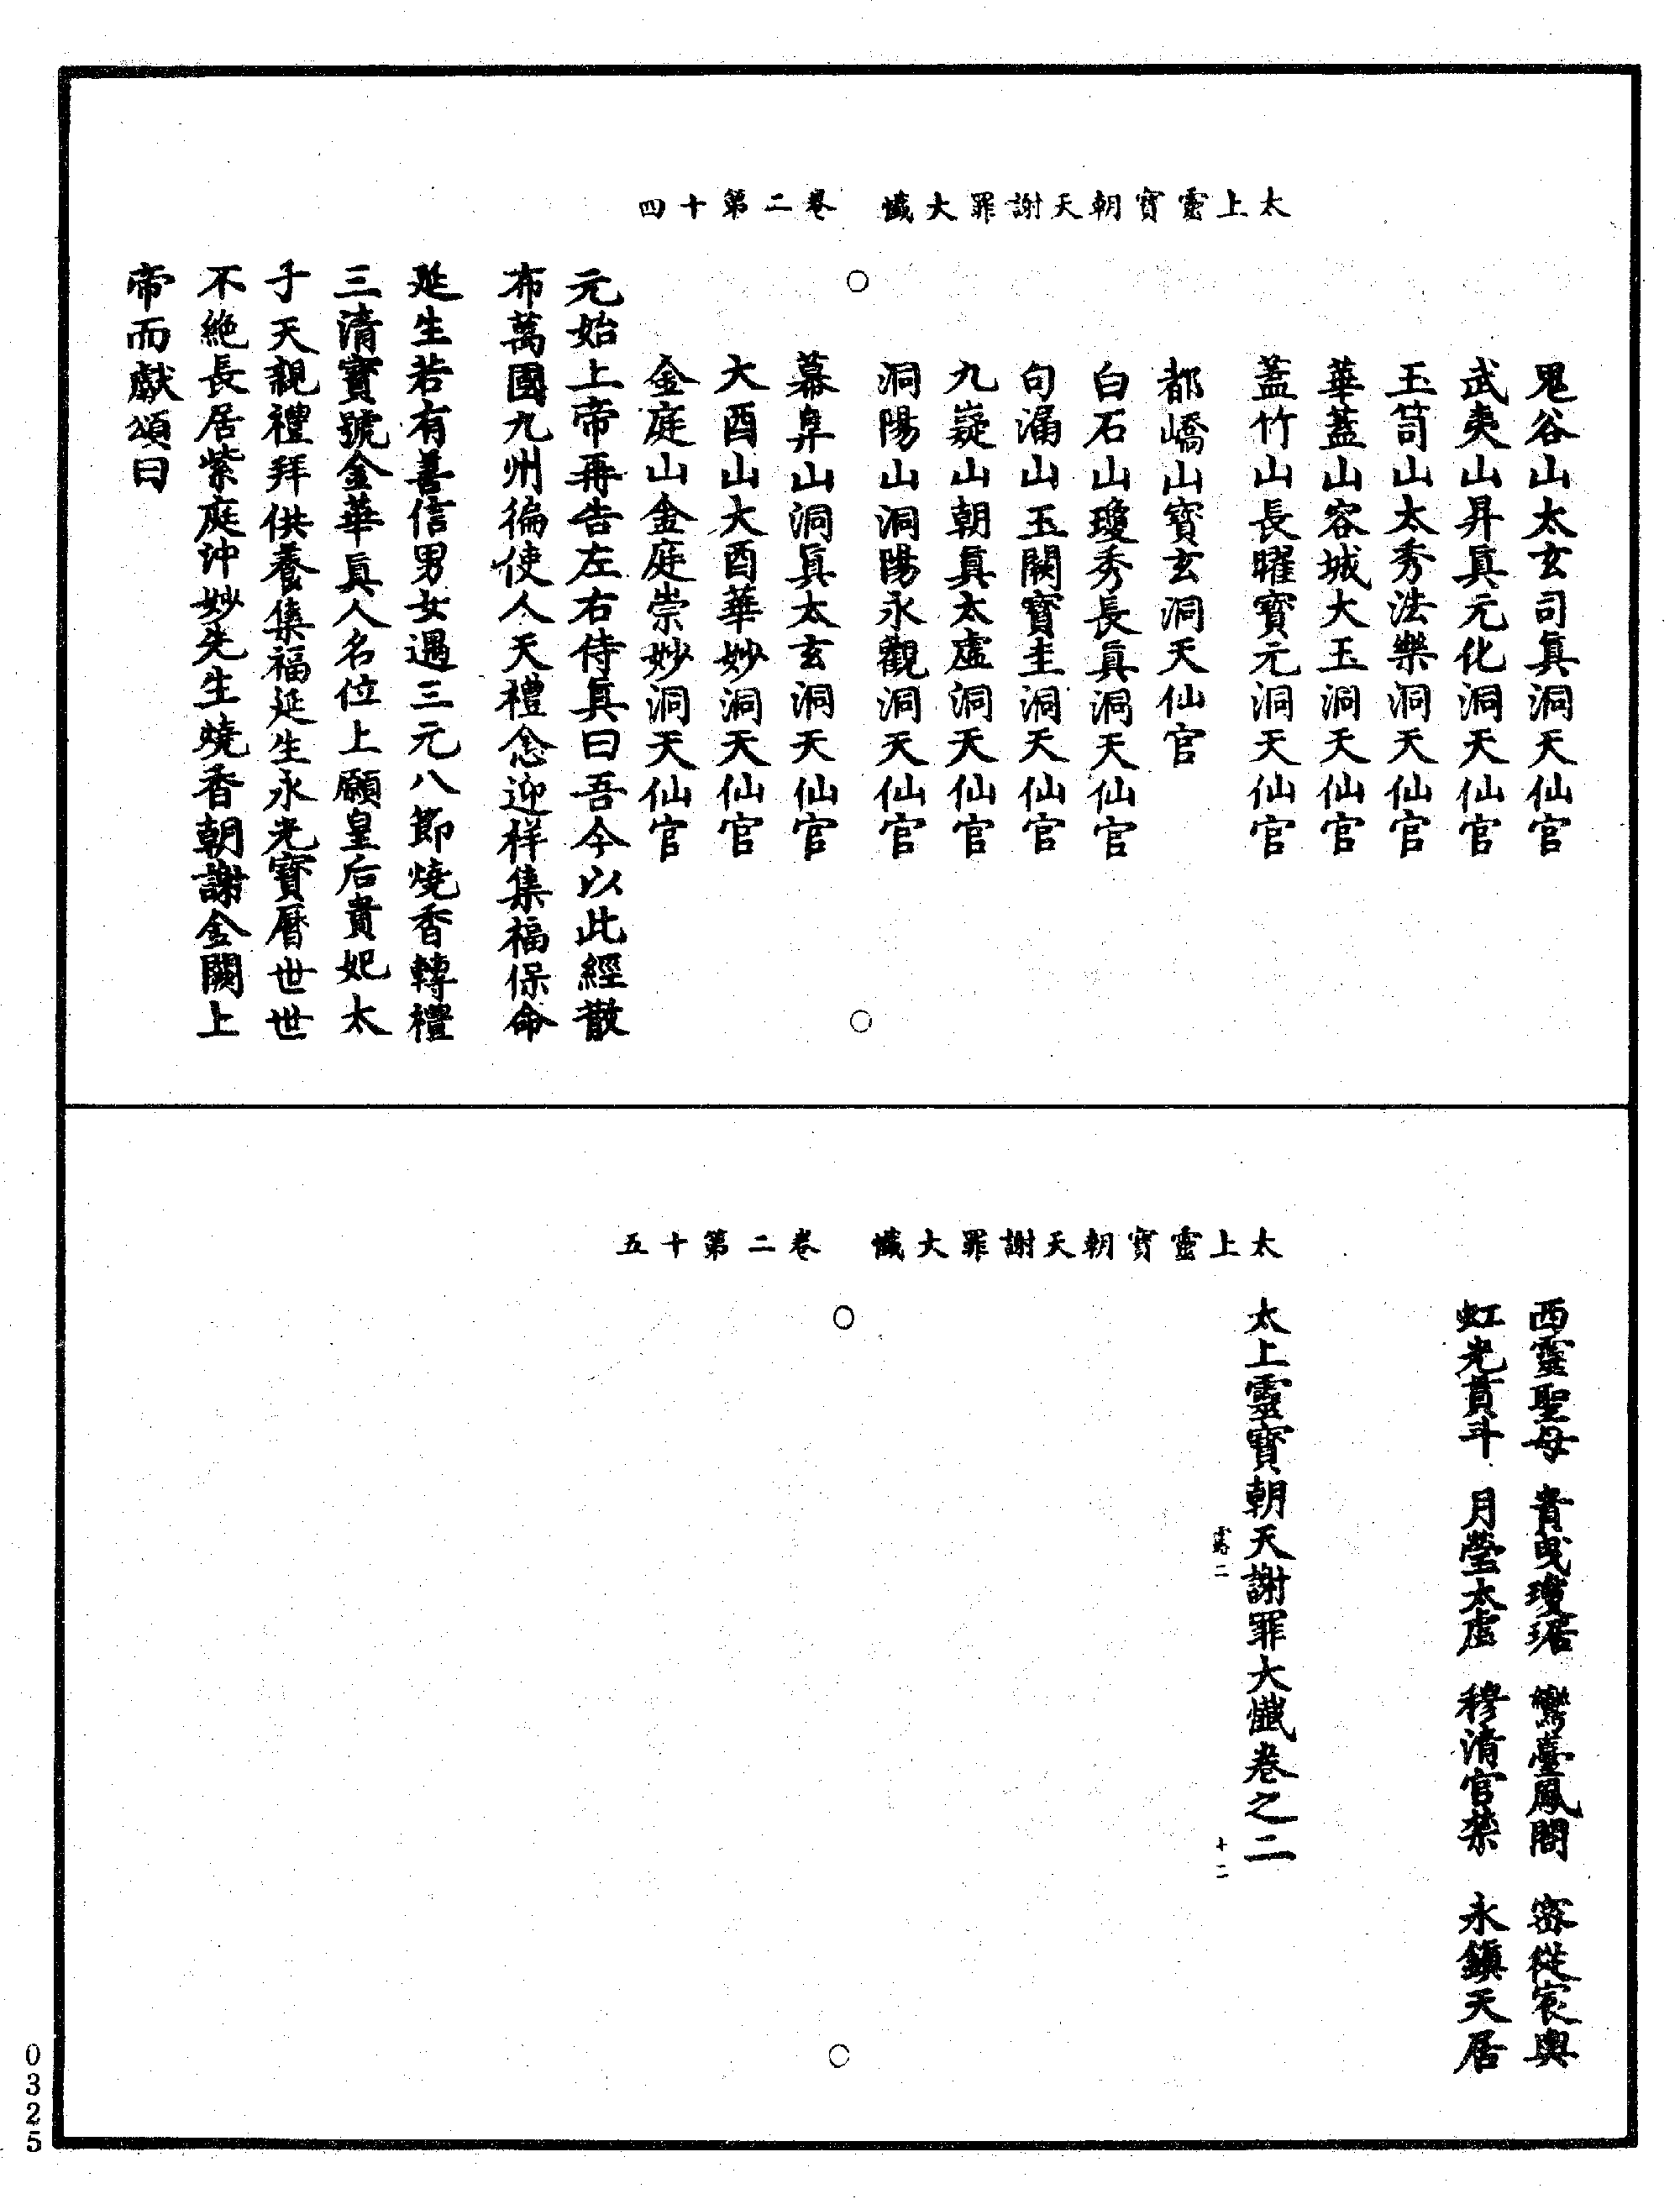 太上靈寶朝天謝罪大懺　卷二第十四
鬼谷山太玄司眞洞天仙官
武夷山昇眞元化洞天仙官
玉笥山太秀法樂洞天仙官
華蓋山容城大玉洞天仙官
蓋竹山長曜寶元洞天仙官
都嶠山寶玄洞天仙官
白石山瓊秀長眞洞天仙官
句漏山玉闕寶圭洞天仙官
九嶷山朝眞太虛洞天仙官
洞陽山洞陽永觀洞天仙官
幕阜山洞眞太玄洞天仙官
大酉山大酉華妙洞天仙官
金庭山金庭崇妙洞天仙官
元始上帝再告左右侍眞曰吾今以此經散
布萬國九州徧使人天禮念迎祥集福保命
延生若有善信男女遇三元八節燒香轉禮
三清寶號金華眞人名位上願皇后貴妃太
子天親禮拜供養集福延生永光寶曆世世
不絶長居紫庭沖妙先生燒香朝謝金闕上
帝而獻頌曰
太上靈寶朝天謝罪大懺　卷二第十五
西靈聖母　貴曵瓊琚　鸞臺鳳閣　密從宸輿
虹光貫斗　月瑩太虛　穆清官禁　永鎭天居
太上靈寶朝天謝罪大懺卷之二
二　十二
0325